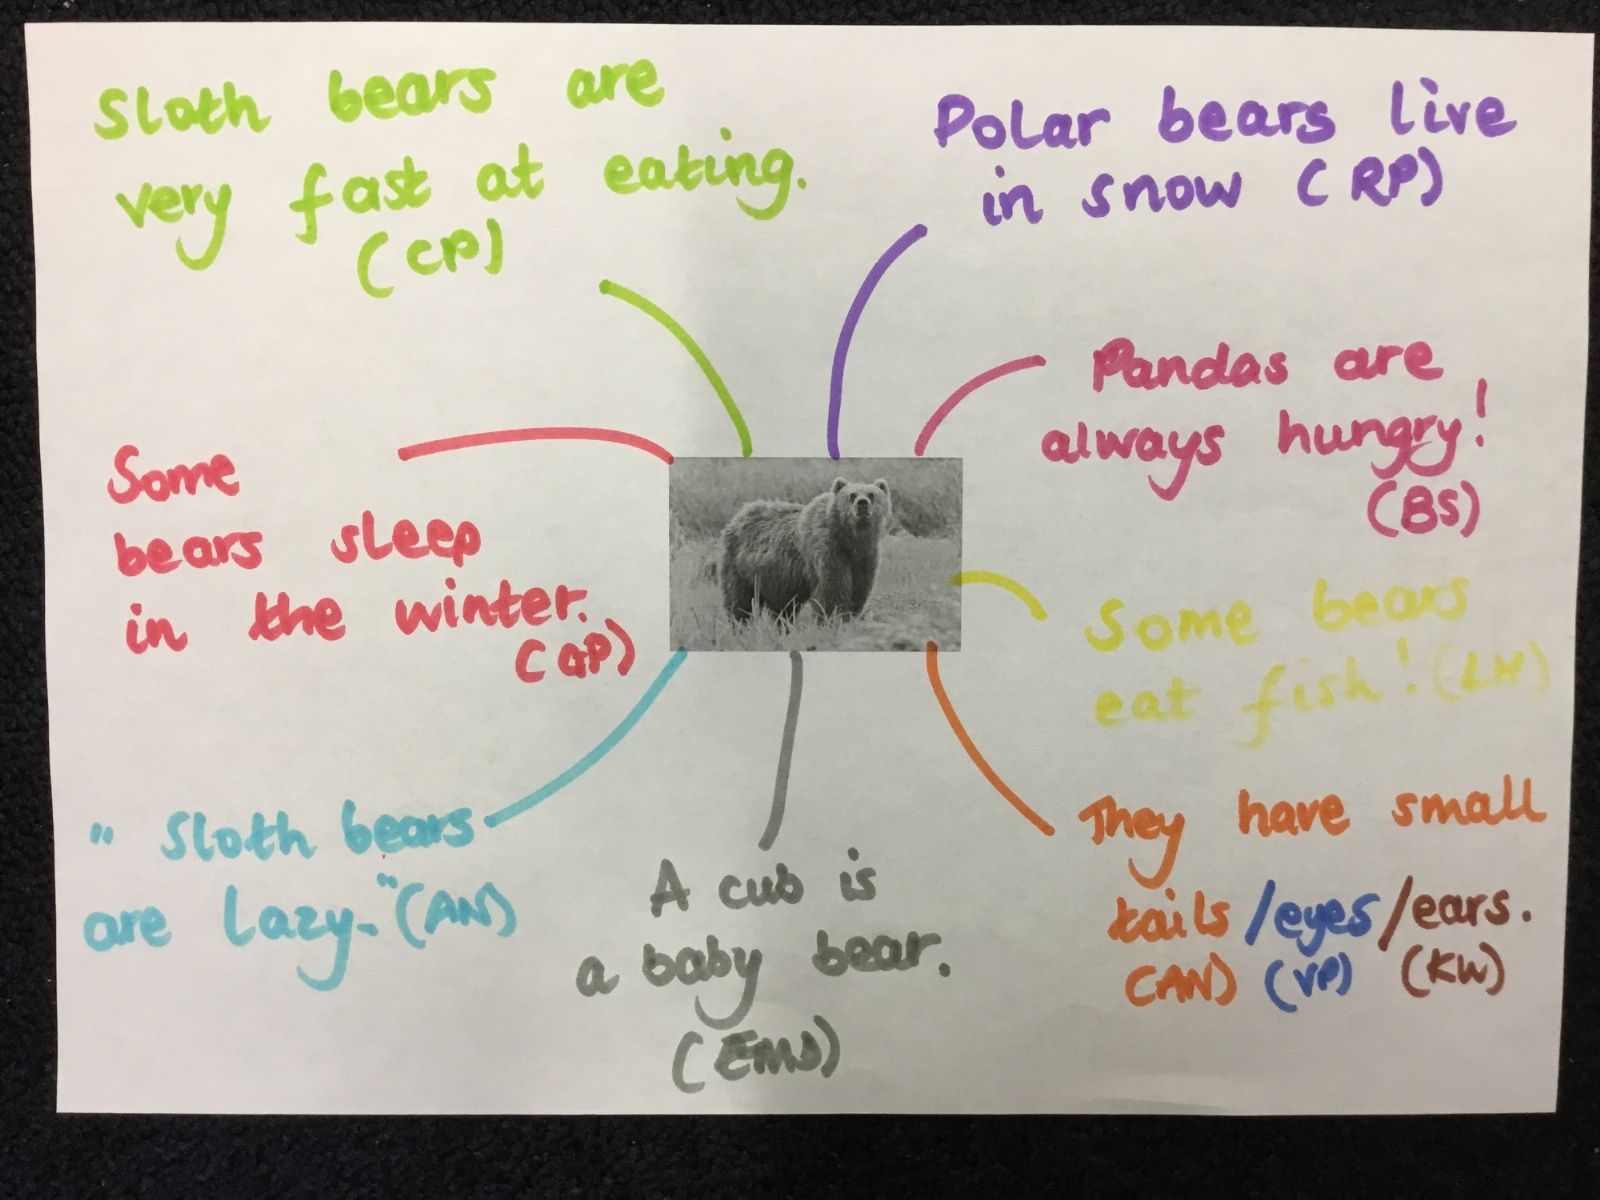 Sloth bears are
very fast at eating.
(CP)
Polar bears live
in snow (RP)
Pandas are
always hungry!
(BS)
Some bears
eat fish! (LH)
They have small
tails /eyes /ears.
(AN) (VP) (KW)
A cub is
a baby bear.
(EMS)
" Sloth bears
are lazy." (AN)
Some
bears sleep
in the winter.
(GP)